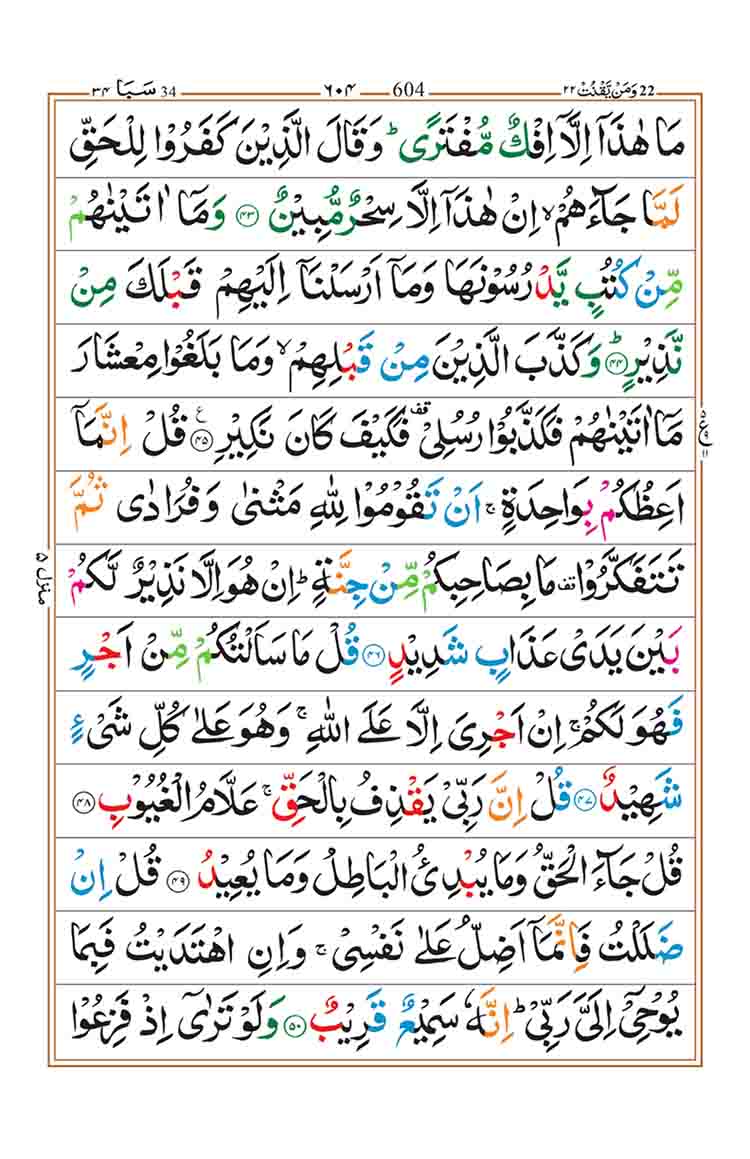 22 وَمَنْ يَّقْنُتْ ۲۲ 604 ۶۰۴ 34 سَبَا ۳۴
مَا هٰذَاۤ اِلَّاۤ اِفْكٌ مُّفْتَرًىؕ وَقَالَ الَّذِيْنَ كَفَرُوْا لِلْحَقِّ
لَمَّا جَآءَهُمْۙ اِنْ هٰذَاۤ اِلَّا سِحْرٌ مُّبِيْنٌ ﴿۴۳﴾ وَمَاۤ اٰتَيْنٰهُمْ
مِّنْ كُتُبٍ يَّدْرُسُوْنَهَا وَمَاۤ اَرْسَلْنَاۤ اِلَيْهِمْ قَبْلَكَ مِنْ
نَّذِيْرٍؕ ﴿۴۴﴾ وَكَذَّبَ الَّذِيْنَ مِنْ قَبْلِهِمْۙ وَمَا بَلَغُوْا مِعْشَارَ
مَاۤ اٰتَيْنٰهُمْ فَكَذَّبُوْا رُسُلِيْ قف فَكَيْفَ كَانَ نَكِيْرِ ﴿۴۵﴾ ع قُلْ اِنَّمَاۤ
اَعِظُكُمْ بِوَاحِدَةٍۚ اَنْ تَقُوْمُوْا لِلّٰهِ مَثْنٰى وَفُرَادٰى ثُمَّ
تَتَفَكَّرُوْا قف مَا بِصَاحِبِكُمْ مِّنْ جِنَّةٍؕ اِنْ هُوَ اِلَّا نَذِيْرٌ لَّكُمْ
بَيْنَ يَدَيْ عَذَابٍ شَدِيْدٍ ﴿۴۶﴾ قُلْ مَا سَاَلْتُكُمْ مِّنْ اَجْرٍ
فَهُوَ لَكُمْؕ اِنْ اَجْرِيَ اِلَّا عَلَى اللّٰهِۚ وَهُوَ عَلٰى كُلِّ شَيْءٍ
شَهِيْدٌ ﴿۴۷﴾ قُلْ اِنَّ رَبِّيْ يَقْذِفُ بِالْحَقِّۚ عَلَّامُ الْغُيُوْبِ ﴿۴۸﴾
قُلْ جَآءَ الْحَقُّ وَمَا يُبْدِئُ الْبَاطِلُ وَمَا يُعِيْدُ ﴿۴۹﴾ قُلْ اِنْ
ضَلَلْتُ فَاِنَّمَاۤ اَضِلُّ عَلٰى نَفْسِيْۚ وَاِنِ اهْتَدَيْتُ فَبِمَا
يُوْحِيْۤ اِلَيَّ رَبِّيْؕ اِنَّهٗ سَمِيْعٌ قَرِيْبٌ ﴿۵۰﴾ وَلَوْ تَرٰۤى اِذْ فَزِعُوْا
منزل ۵